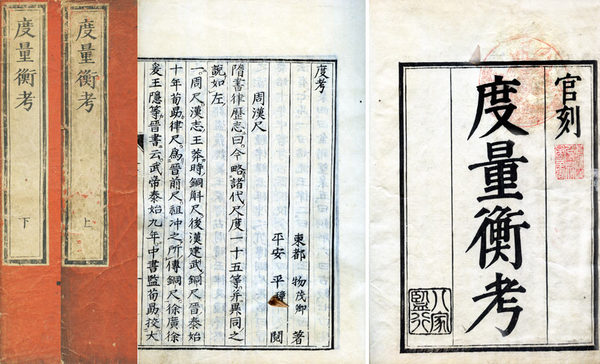 度量衡考
下
度量衡考
上
度考
東都 物茂卿 著
平安 平 閲
周漢尺
隋書律歷志曰今略諸代尺度一十五等并異同之
說如左
一周尺漢志王莽時銅斛尺後漢建武銅尺晉泰始
十年荀勗律尺爲晉前尺祖冲之所傳銅尺徐廣徐
爰王隱等晉書云武帝泰始九年中書監荀勗校大
官刻
度量衡考